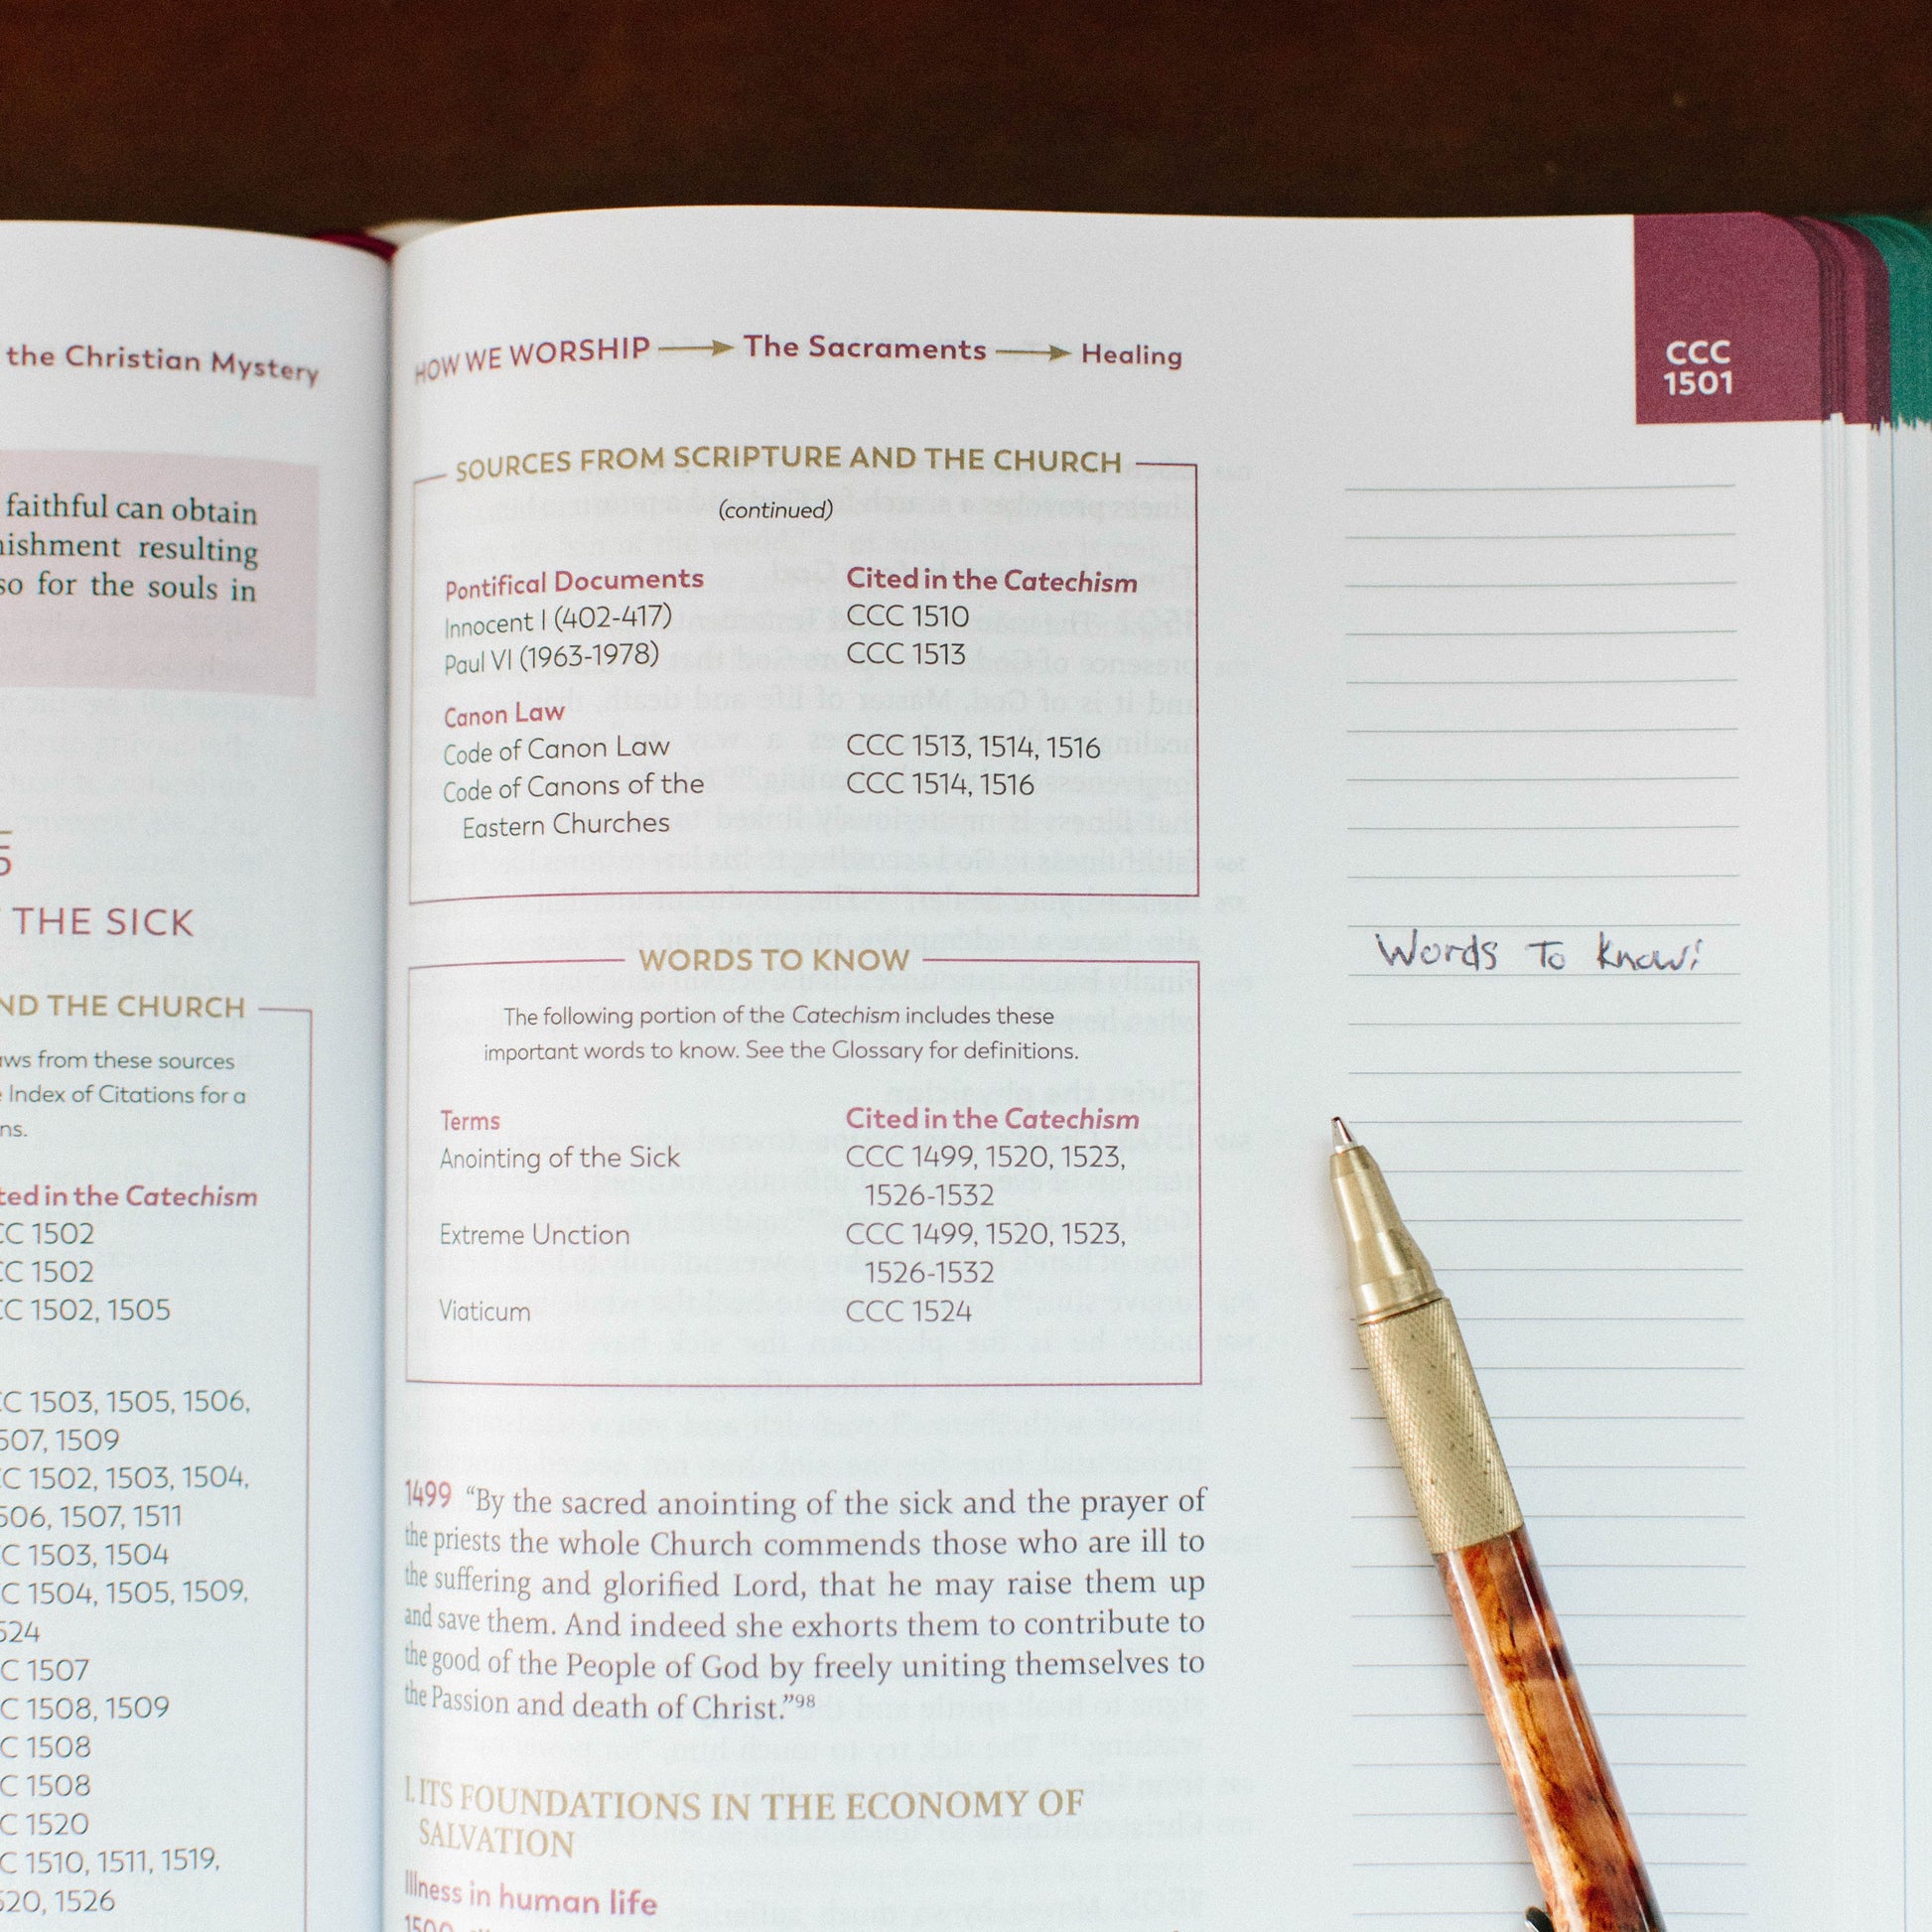 the Christian Mystery
faithful can obtain
resulting
so for the souls in
5
THE SICK
AND THE CHURCH
from these sources
Index of Citations for a
Cited in the Catechism
CCC 1502
CCC 1502
CCC 1502, 1505
CCC 1503, 1505, 1506,
1507, 1509
CCC 1502, 1503, 1504,
1506, 1507, 1511
CCC 1503, 1504
CCC 1504, 1505, 1509,
1524
CCC 1507
CCC 1508, 1509
CCC 1508
CCC 1508
CCC 1520
CCC 1510, 1511, 1519,
1520, 1526
HOW WE WORSHIP → The Sacraments → Healing
CCC
1501
SOURCES FROM SCRIPTURE AND THE CHURCH
(continued)
Pontifical Documents Cited in the Catechism
Innocent I (402-417) CCC 1510
Paul VI (1963-1978) CCC 1513
Canon Law
Code of Canon Law CCC 1513, 1514, 1516
Code of Canons of the CCC 1514, 1516
Eastern Churches
WORDS TO KNOW
The following portion of the Catechism includes these
important words to know. See the Glossary for definitions.
Terms Cited in the Catechism
Anointing of the Sick CCC 1499, 1520, 1523,
1526-1532
Extreme Unction CCC 1499, 1520, 1523,
1526-1532
Viaticum CCC 1524
1499 “By the sacred anointing of the sick and the prayer of
the priests the whole Church commends those who are ill to
the suffering and glorified Lord, that he may raise them up
and save them. And indeed she exhorts them to contribute to
the good of the People of God by freely uniting themselves to
the Passion and death of Christ.”98
I. ITS FOUNDATIONS IN THE ECONOMY OF
SALVATION
Illness in human life
1500
Words To Know!